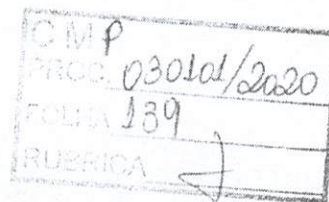 C M P
PROC. 030101/2020
FOLHA 139
RUBRICA